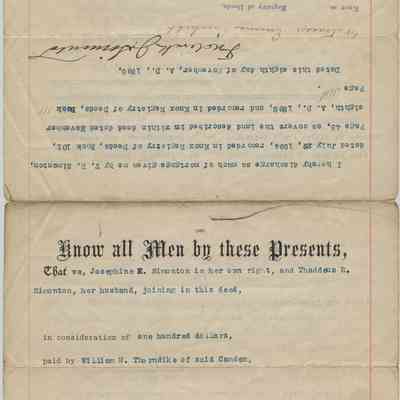 I hereby discharge so much of mortgage given me by T. R. Simonton,
dated July 28, 1894, recorded in Knox Registry of Deeds, Book 101,
Page 43, as covers the land described in within deed dated November
eighth, A. D., 1899, and recorded in Knox Registry of Deeds, Book
Page
Dated this eighth day of November, A. D., 1900.
Simonton
Witness Emma
Knox ss. Registry of Deeds.
Know all Men by these Presents,
That we, Josephine E. Simonton in her own right, and Thaddeus R.
Simonton, her husband, joining in this deed,
in consideration of one hundred dollars,
paid by William H. Thorndike of said Camden,